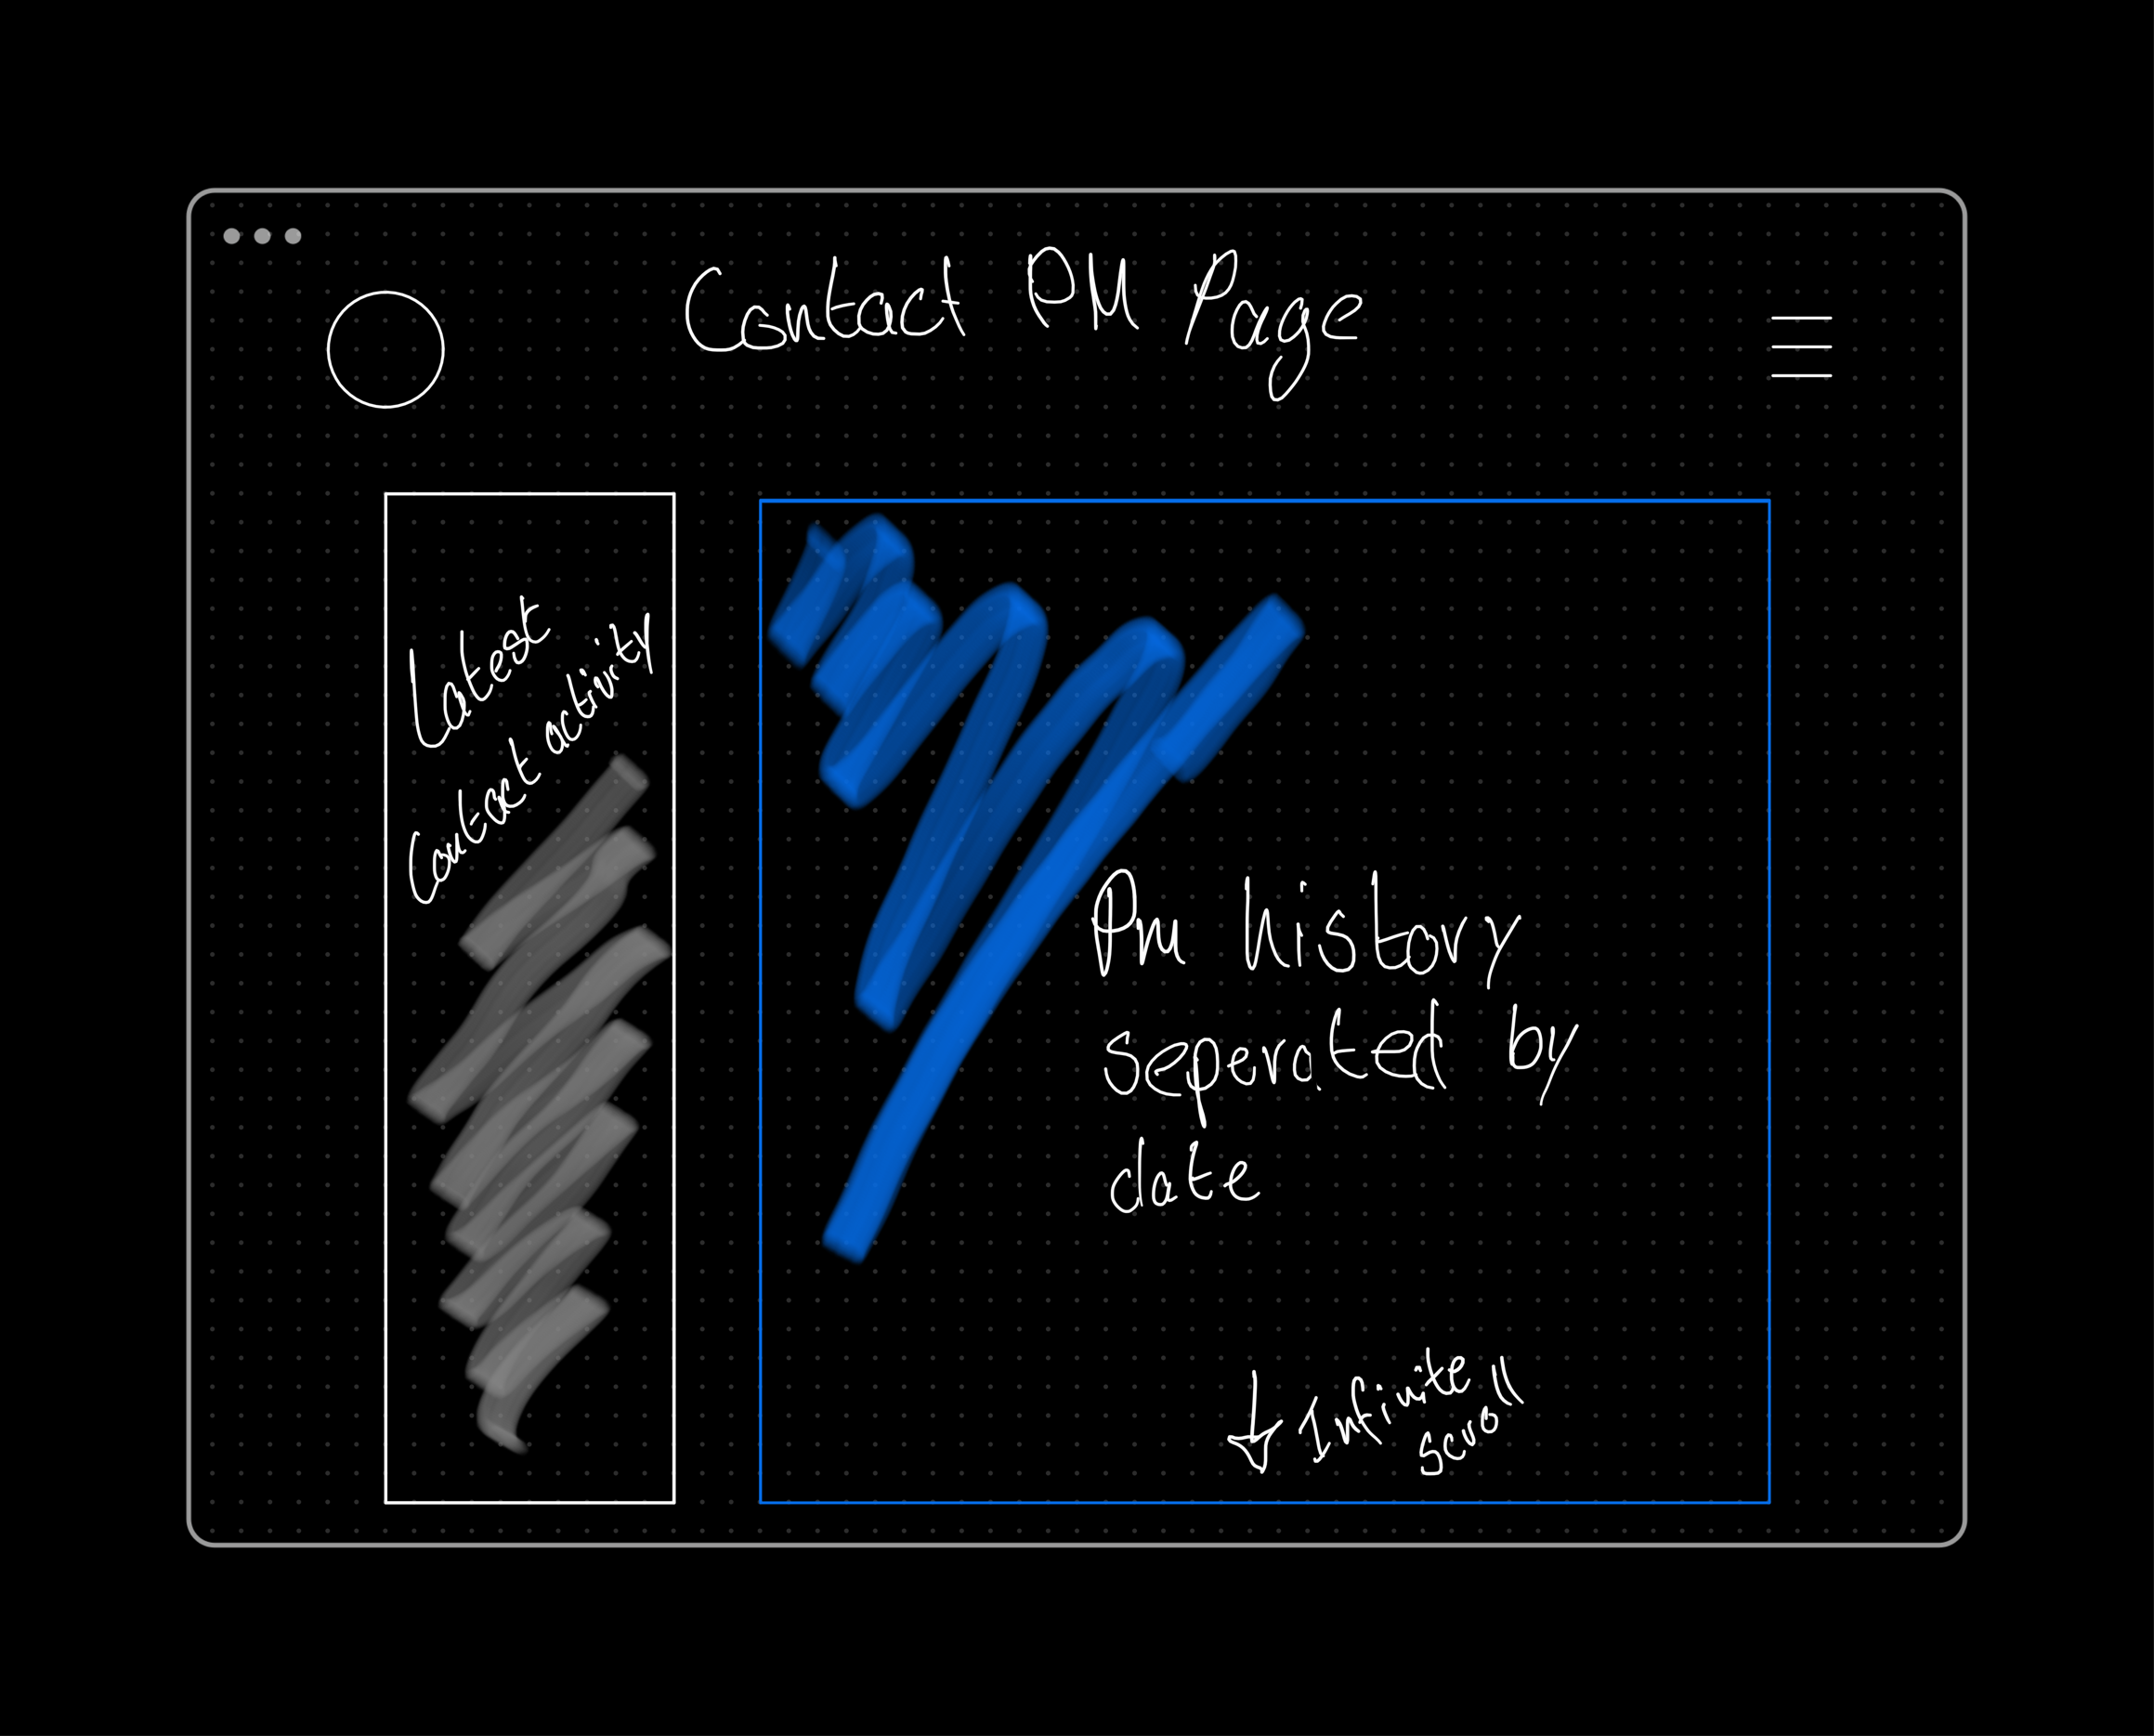 Contact PM Page
Latest
Contact activity
Pm history
seperated by
date
Infinite
Scroll